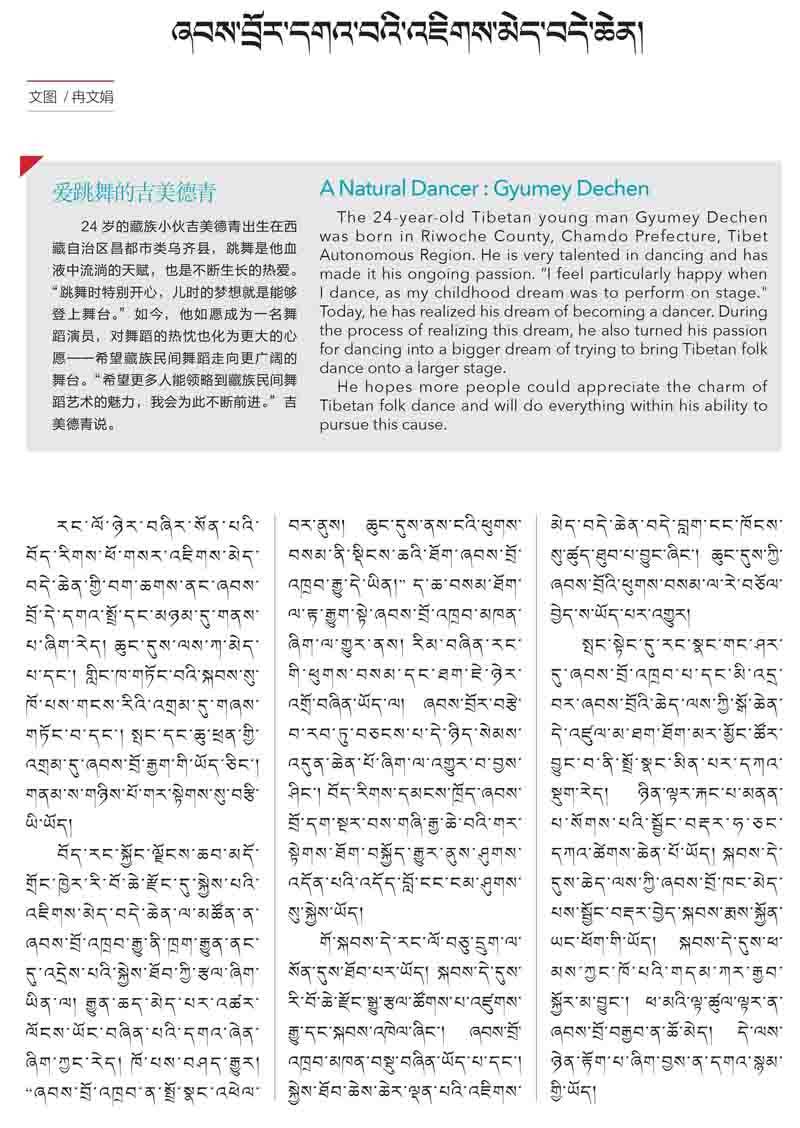 ཞབས་བྲོར་དགའ་བའི་འཇིགས་མེད་བདེ་ཆེན།
文图 / 冉文娟
爱跳舞的吉美德青
24 岁的藏族小伙吉美德青出生在西
藏自治区昌都市类乌齐县，跳舞是他血
液中流淌的天赋，也是不断生长的热爱。
“跳舞时特别开心，儿时的梦想就是能够
登上舞台。” 如今，他如愿成为一名舞
蹈演员，对舞蹈的热忱也化为更大的心
愿——希望藏族民间舞蹈走向更广阔的
舞台。“希望更多人能领略到藏族民间舞
蹈艺术的魅力，我会为此不断前进。” 吉
美德青说。
A Natural Dancer : Gyumey Dechen
The 24-year-old Tibetan young man Gyumey Dechen
was born in Riwoche County, Chamdo Prefecture, Tibet
Autonomous Region. He is very talented in dancing and has
made it his ongoing passion. “I feel particularly happy when
I dance, as my childhood dream was to perform on stage."
Today, he has realized his dream of becoming a dancer. During
the process of realizing this dream, he also turned his passion
for dancing into a bigger dream of trying to bring Tibetan folk
dance onto a larger stage.
He hopes more people could appreciate the charm of
Tibetan folk dance and will do everything within his ability to
pursue this cause.
རང་ལོ་ཉེར་བཞིར་སོན་པའི་
བོད་རིགས་ཕོ་གསར་འཇིགས་མེད་
བདེ་ཆེན་གྱི་བག་ཆགས་ནང་ཞབས་
བྲོ་དེ་དགའ་སྤྲོ་དང་མཉམ་དུ་གནས་
པ་ཞིག་རེད། ཆུང་དུས་ལས་ཀ་མེད་
པ་དང་། གླིང་ཁ་གཏོང་བའི་སྐབས་སུ་
ཁོ་པས་གངས་རིའི་འགྲམ་དུ་གཞས་
གཏོང་བ་དང་། སྤང་དང་ཆུ་ཕྲན་གྱི་
འགྲམ་དུ་ཞབས་བྲོ་རྒྱག་གི་ཡོད་ཅིང་།
གནམ་ས་གཉིས་པོ་གར་སྟེགས་སུ་བརྩི་
ཡི་ཡོད།
བོད་རང་སྐྱོང་ལྗོངས་ཆབ་མདོ་
གྲོང་ཁྱེར་རི་བོ་ཆེ་རྫོང་དུ་སྐྱེས་པའི་
འཇིགས་མེད་བདེ་ཆེན་ལ་མཚོན་ན་
ཞབས་བྲོ་འཁྲབ་རྒྱུ་ནི་ཁྲག་རྒྱུན་ནང་
དུ་འདྲེས་པའི་སྐྱེས་ཐོབ་ཀྱི་རྩལ་ཞིག་
ཡིན་ལ། རྒྱུན་ཆད་མེད་པར་འཚར་
ལོངས་ཡོང་བཞིན་པའི་དགའ་ཞེན་
ཞིག་ཀྱང་རེད། ཁོ་པས་བཤད་རྒྱུར།
“ཞབས་བྲོ་འཁྲབ་ན་སྤྲོ་སྣང་འཕེལ་
བར་ནུས། ཆུང་དུས་ནས་ངའི་ཕུགས་
བསམ་ནི་སྡིངས་ཆའི་ཐོག་ཞབས་བྲོ་
འཁྲབ་རྒྱུ་དེ་ཡིན།” ད་ཆ་བསམ་ཐོག་
ལ་རྟ་རྒྱུག་སྟེ་ཞབས་བྲོ་འཁྲབ་མཁན་
ཞིག་ལ་གྱུར་ནས། རིམ་བཞིན་རང་
གི་ཕུགས་བསམ་དང་ཐག་ཇེ་ཉེར་
འགྲོ་བཞིན་ཡོད་ལ། ཞབས་བྲོར་བརྩེ་
བ་རབ་ཏུ་བཅངས་པ་དེ་ཉིད་སེམས་
འདུན་ཆེན་པོ་ཞིག་ལ་འགྱུར་བ་བྱས་
ཤིང་། བོད་རིགས་དམངས་ཁྲོད་ཞབས་
བྲོ་དག་སྔར་བས་གཞི་རྒྱ་ཆེ་བའི་གར་
སྟེགས་ཐོག་བསྐྱོད་རྒྱུར་ནུས་ཤུགས་
འདོན་པའི་འདོད་བློ་ངང་ངམ་ཤུགས་
སུ་སྐྱེས་ཡོད།
གོ་སྐབས་དེ་རང་ལོ་བཅུ་དྲུག་ལ་
སོན་དུས་ཐོབ་པར་ཡོད། སྐབས་དེ་དུས་
རི་བོ་ཆེ་རྫོང་སྒྱུ་རྩལ་ཚོགས་པ་འཛུགས་
རྒྱུ་དང་སྐབས་འཁེལ་ཞིང་། ཞབས་བྲོ་
འཁྲབ་མཁན་བསྡུ་བཞིན་ཡོད་པ་དང་།
སྐྱེས་ཐོབ་ཆེས་ཆེར་ལྡན་པའི་འཇིགས་
མེད་བདེ་ཆེན་བདེ་བླག་ངང་ཁོངས་
སུ་ཚུད་ཐུབ་པ་བྱུང་ཞིང་། ཆུང་དུས་ཀྱི་
ཞབས་བྲོའི་ཕུགས་བསམ་ལ་རེ་བཅོལ་
བྱེད་ས་ཡོད་པར་འགྱུར།
སྤང་སྟེང་དུ་རང་སྣང་གང་ཤར་
དུ་ཞབས་བྲོ་འཁྲབ་པ་དང་མི་འདྲ་
བར་ཞབས་བྲོའི་ཆེད་ལས་ཀྱི་སྒོ་ཆེན་
དེ་འཛུལ་མ་ཐག་ཐོག་མར་མྱོང་ཚོར་
བྱུང་བ་ནི་སྤྲོ་སྣང་མིན་པར་དཀའ་
སྡུག་རེད། ཉིན་ལྟར་རྐང་པ་མནན་
པ་སོགས་པའི་སྦྱོང་བརྡར་ཧ་ཅང་
དཀའ་ཚེགས་ཆེན་པོ་ཡོད། སྐབས་དེ་
དུས་ཆེད་ལས་ཀྱི་ཞབས་བྲོ་ཁང་མེད་
པས་སྦྱོང་བརྡར་བྱེད་སྐབས་རྨས་སྐྱོན་
ཡང་ཕོག་གི་ཡོད། སྐབས་དེ་དུས་ཕ་
མས་ཀྱང་ཁོ་པའི་གདམ་ཀར་རྒྱབ་
སྐྱོར་མ་བྱུང་། ཕ་མའི་ལྟ་ཚུལ་ལྟར་ན་
ཞབས་བྲོ་བརྒྱབ་ན་ཚོ་མེད། དེ་ལས་
ཉེན་རྟོག་པ་ཞིག་བྱས་ན་དགའ་སྙམ་
གྱི་ཡོད།